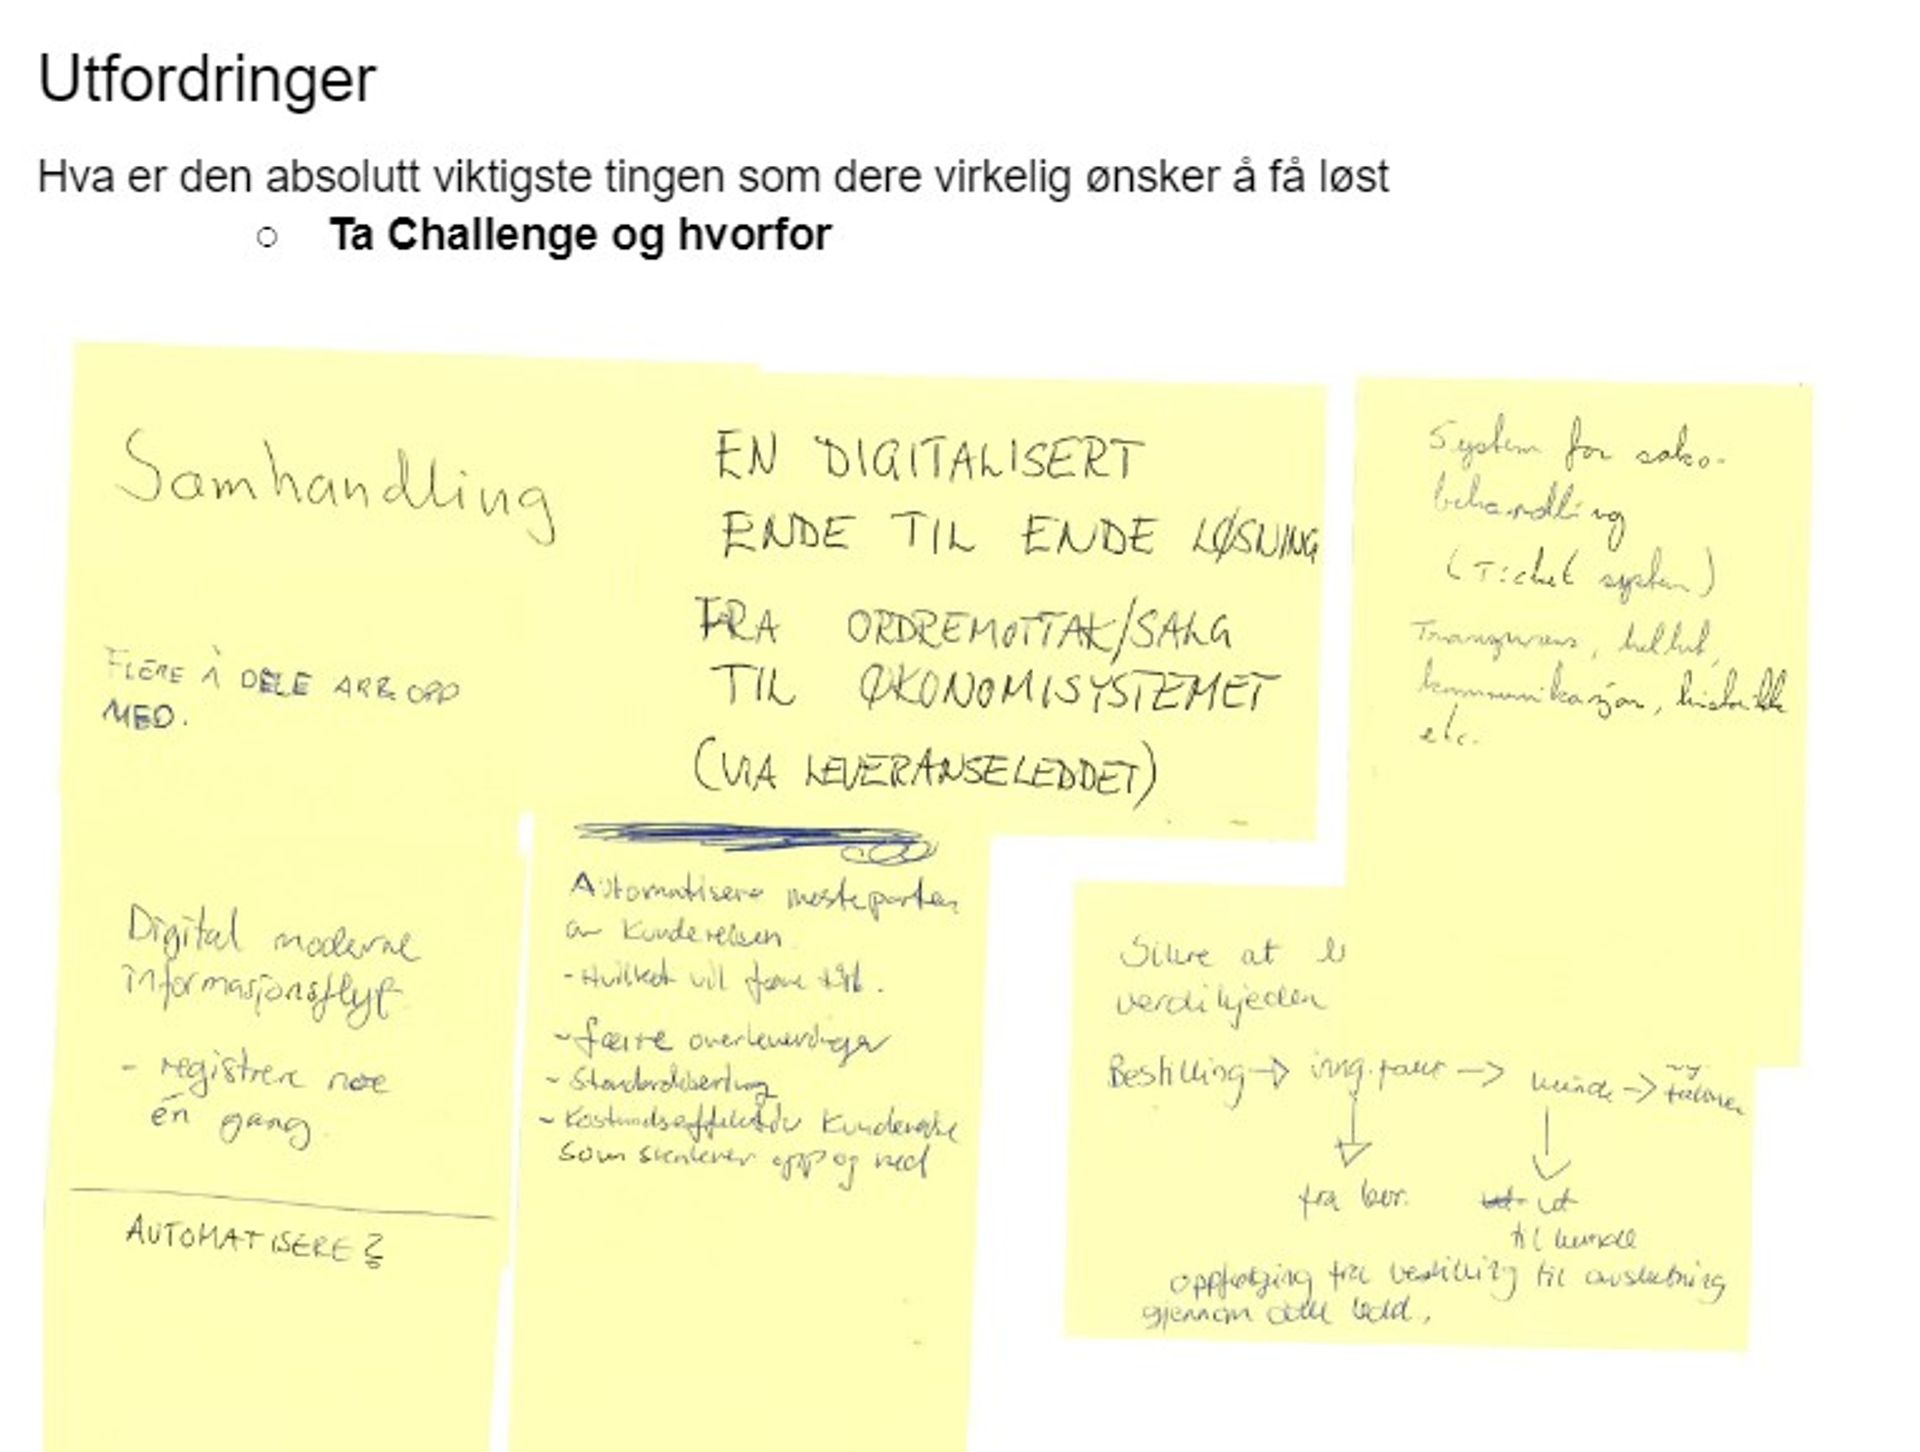 Utfordringer
Hva er den absolutt viktigste tingen som dere virkelig ønsker å få løst
○ Ta Challenge og hvorfor
Samhandling
FLERE Å DELE ARB. OPP
MED.
EN DIGITALISERT
ENDE TIL ENDE LØSNING
FRA ORDREMOTTAK/SALG
TIL ØKONOMISYSTEMET
(VIA LEVERANSELEDDET)
System for saks-
behandling
(Ticket system)
kommunikasjon, historikk
etc.
Digital moderne
informasjonsflyt
- registrere noe
én gang
AUTOMATISERE?
Automatisere mesteparten
av Kundereisen
- Hvilket vil føre til.
- færre overleveringer
- Standardisering
- Kostnadseffektiv Kundereise
som skalerer opp og ned
Sikre at
verdikjeden
Bestilling → inng. faktur → kunde → ny
fra lev. ut
til kunde
oppfølging fra bestilling til avslutning
gjennom alle ledd.